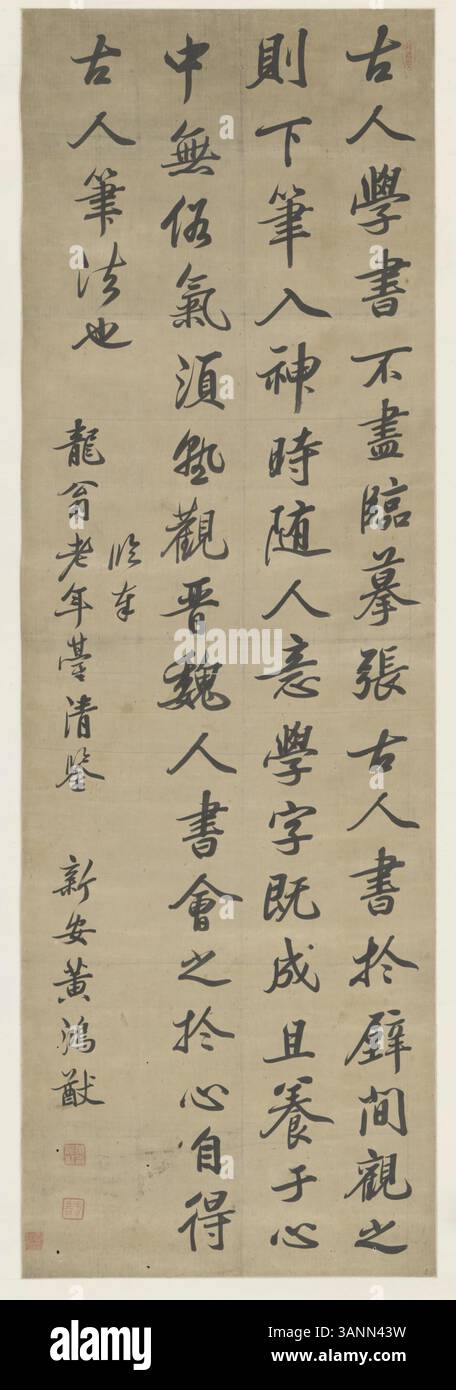 古人學書不盡臨摹張古人書於壁間觀之
則下筆入神時随人意學字既成且養于心
中無俗氣須熟觀晋魏人書會之於心自得
古人筆法也
臨奉
龍翁老年臺清鑒
新安黄鴻猷
alamy
alamy
Image ID: 3ANN43W
www.alamy.com